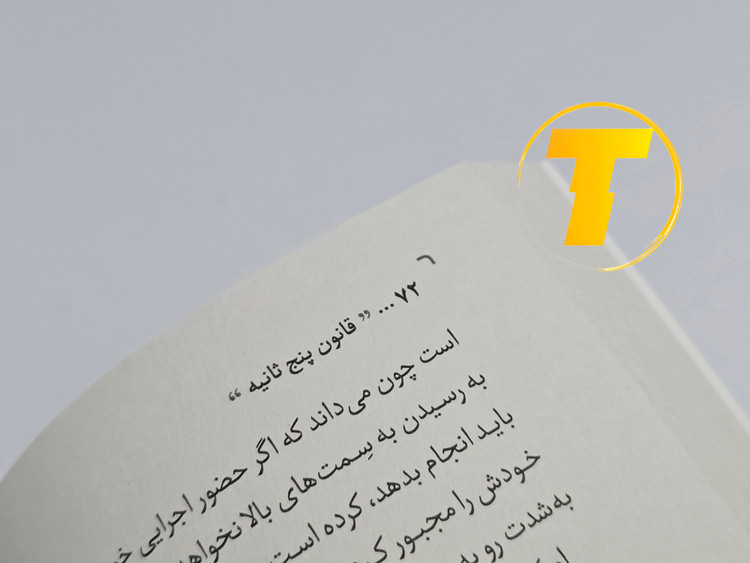 T
۷۲ ... ” قانون پنج ثانیه “
است چون می‌داند که اگر حضور اجرایی
به رسیدن به سِمت‌های بالا
باید انجام بدهد، کرده است
خودش را مجبور
به‌شدت رو به